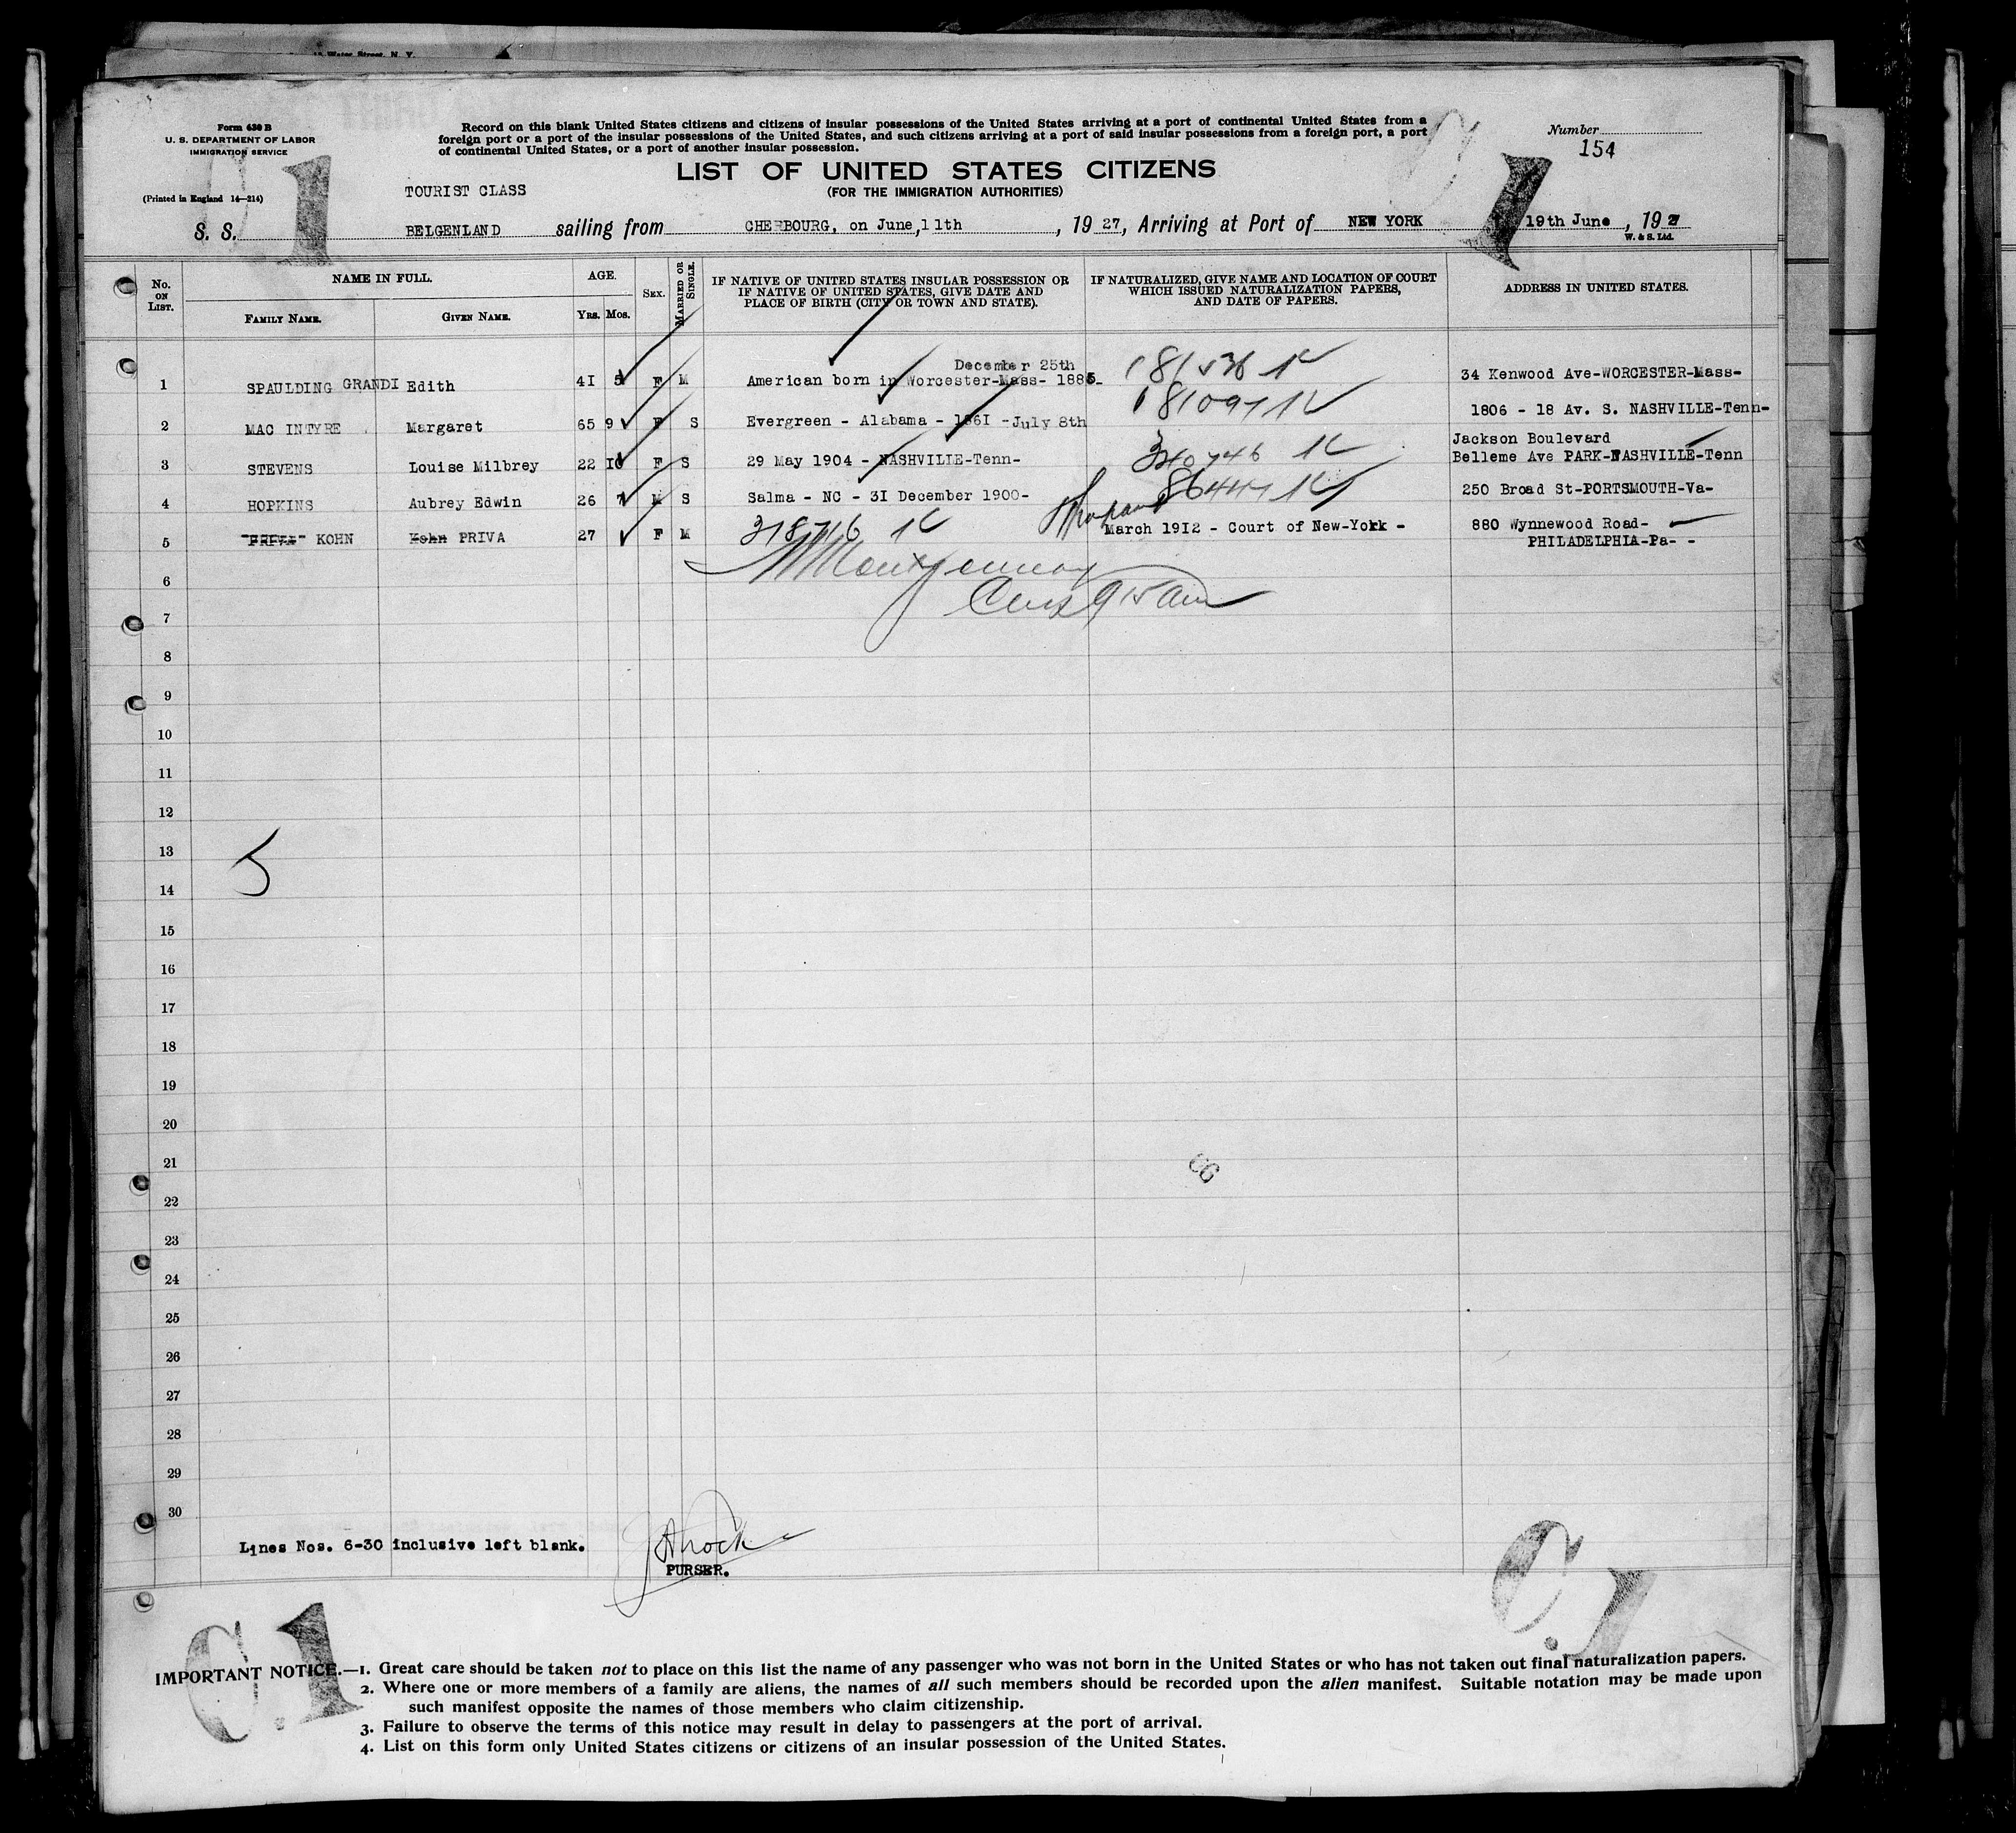 Water Street, N. Y.
Form 630 B
U. S. DEPARTMENT OF LABOR
IMMIGRATION SERVICE
(Printed in England 14—214)
Record on this blank United States citizens and citizens of insular possessions of the United States arriving at a port of continental United States from a
foreign port or a port of the insular possessions of the United States, and such citizens arriving at a port of said insular possessions from a foreign port, a port
of continental United States, or a port of another insular possession.
Number
154
LIST OF UNITED STATES CITIZENS
(FOR THE IMMIGRATION AUTHORITIES)
TOURIST CLASS
S. S. BELGENLAND sailing from CHERBOURG, on June, 11th, 1927, Arriving at Port of NEW YORK 19th June, 1927
W. & S. Ltd.
No. ON LIST.
NAME IN FULL.
FAMILY NAME.
GIVEN NAME.
AGE.
YRS. MOS.
SEX.
MARRIED OR SINGLE.
IF NATIVE OF UNITED STATES INSULAR POSSESSION OR
IF NATIVE OF UNITED STATES, GIVE DATE AND
PLACE OF BIRTH (CITY OR TOWN AND STATE).
IF NATURALIZED, GIVE NAME AND LOCATION OF COURT
WHICH ISSUED NATURALIZATION PAPERS,
AND DATE OF PAPERS.
ADDRESS IN UNITED STATES.
December 25th
1 SPAULDING GRANDI Edith 41 5 F M American born in Worcester-Mass- 1885- 34 Kenwood Ave-WORCESTER-Mass-
2 MAC INTYRE Margaret 65 9 F S Evergreen - Alabama - 1861 -July 8th 1806 - 18 Av. S. NASHVILLE-Tenn-
Jackson Boulevard
3 STEVENS Louise Milbrey 22 10 F S 29 May 1904 - NASHVILLE-Tenn- 340746 Belleme Ave PARK-NASHVILLE-Tenn
4 HOPKINS Aubrey Edwin 26 7 M S Salma - NC - 31 December 1900- 250 Broad St-PORTSMOUTH-Va-
5 PRIVA KOHN Kohn PRIVA 27 F M 318716 March 1912 - Court of New-York - 880 Wynnewood Road-
PHILADELPHIA-Pa- -
6
7
8
9
10
11
12
13
5
14
15
16
17
18
19
20
21
22
23
24
25
26
27
28
29
30
Lines Nos. 6-30 inclusive left blank.
PURSER.
C.1
C.1
IMPORTANT NOTICE.—1. Great care should be taken not to place on this list the name of any passenger who was not born in the United States or who has not taken out final naturalization papers.
2. Where one or more members of a family are aliens, the names of all such members should be recorded upon the alien manifest. Suitable notation may be made upon
such manifest opposite the names of those members who claim citizenship.
3. Failure to observe the terms of this notice may result in delay to passengers at the port of arrival.
4. List on this form only United States citizens or citizens of an insular possession of the United States.